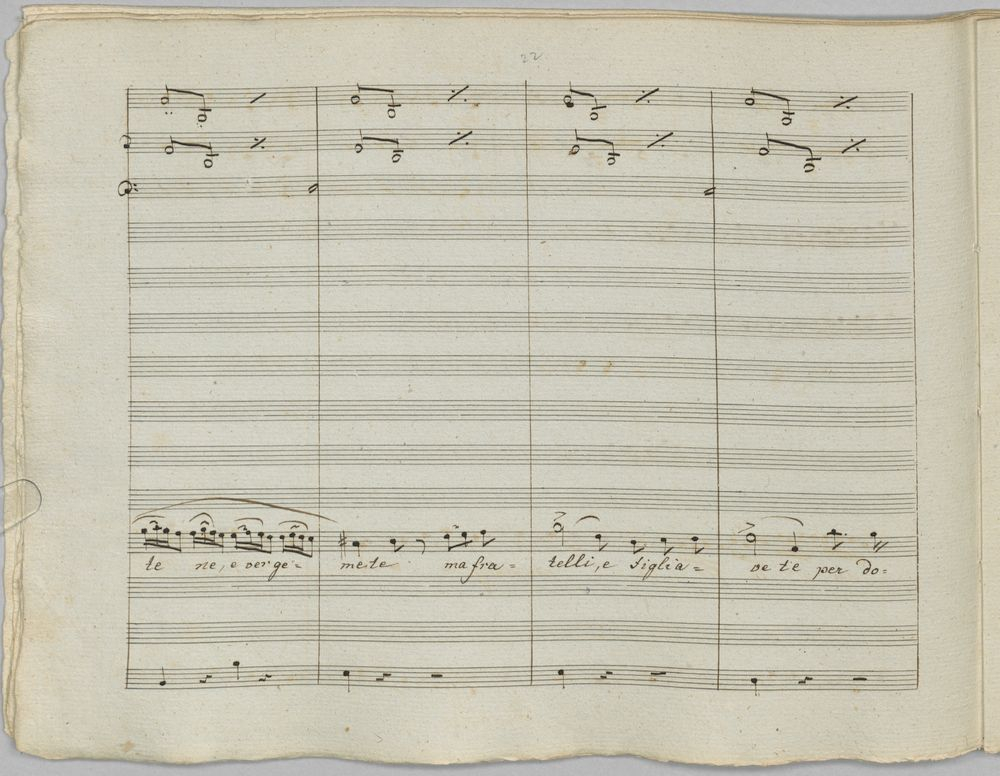 22
te ne, e verge= mete ma fra= telli, e figlia= ve te per do=